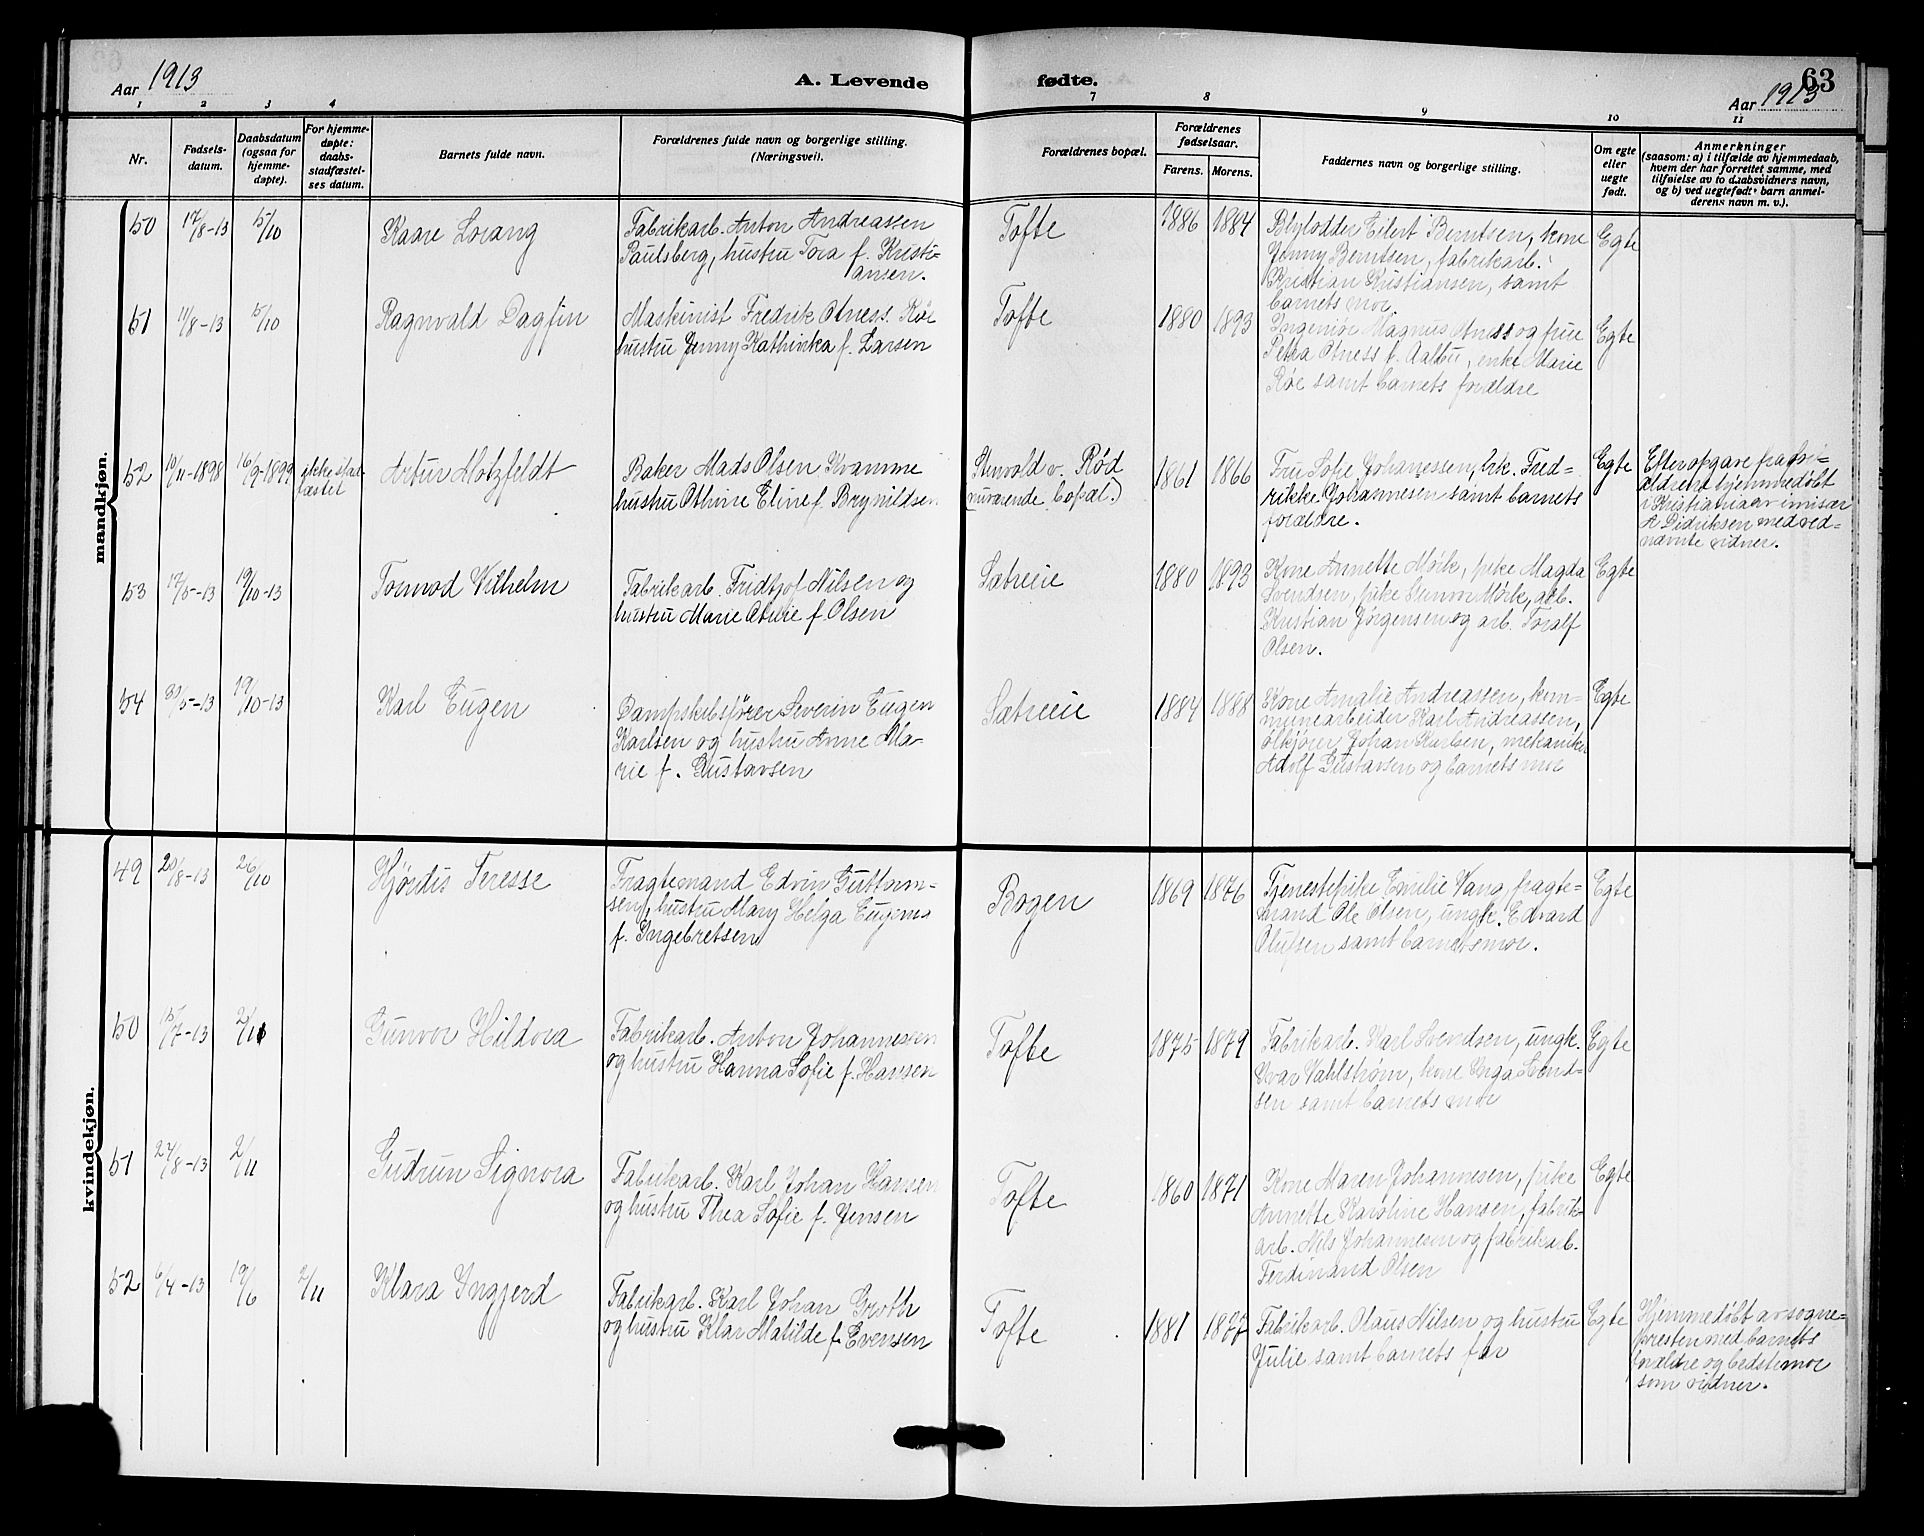 Aar 1913
A. Levende
fødte.
63
Aar 1913
1 2 3 4 7 8 9 10 11
Nr.
Fødsels-
datum.
Daabsdatum
(ogsaa for
hjemme-
døpte).
For hjemme-
døpte:
daabs-
stadfæstel-
ses datum.
Barnets fulde navn.
Forældrenes fulde navn og borgerlige stilling.
(Næringsvei).
Forældrenes bopæl.
Forældrenes
fødselsaar.
Farens. Morens.
Faddernes navn og borgerlige stilling.
Om egte
eller
uegte
født.
Anmerkninger
(saasom: a) i tilfælde av hjemmedaab,
hvem der har forrettet samme, med
tilføielse av to daabsvidners navn,
og b) ved uegtefødt barn anmel-
derens navn m. v.).
mandkjøn.
50 17/8-13 5/10
Kaare Lorang
Fabrikarb. Anton Andreassen
Paulsberg, hustru Tora f. Kristi-
ansen.
Tofte
1886 1884
Blylodder Eilert Berntsen, kone
Jenny Berntsen, fabrikarb.
Kristian Kristiansen, samt
barnets mor.
Egte
51 11/8-13 5/10
Ragnvald Dagfin
Maskinist Fredrik Otness Røe
hustru Jenny Kathinka f. Larsen
Tofte
1880 1893
Ingeniør Magnus Otness og frue
Petra Otness f. Aalbu, enke Marie
Røe samt barnets forældre
Egte
52 10/11-1898 16/9-1899
ikke stad-
fæstet
Artur Motzfeldt
Baker Mads Olsen Kvamme
hustru Othine Eline f. Brynildsen
Stenvold v. Rød
(nuværende bopæl.)
1861 1866
Fru Sofie Johannessen, frk. Fred-
rikke Johannesen samt barnets
forældre.
Egte
Efter opgave fra for-
ældrene hjemmedøbt
i Kristiania av emisær
A Didriksen med ved-
nævnte vidner.
53 17/5-13 19/10-13
Tormod Vilhelm
Fabrikarb. Fridtjof Nilsen og
hustru Marie Otilie f. Olsen
Sætreeie
1880 1893
Kone Annette Mørk, pike Magda
Svendsen, pike Gunvor Mørk, arb.
Kristian Jørgensen og arb. Toralf
Olsen.
Egte
54 30/5-13 19/10-13
Karl Eugen
Dampskibsfører Severin Eugen
Karlsen og hustru Anne Ma-
rie f. Gustavsen
Sætreeie
1884 1888
Kone Amalie Andreassen, kom-
munearbeider Karl Andreassen,
ølkjører Johan Karlsen, mekaniker
Adolf Gustavsen og barnets mor
Egte
kvindekjøn.
49 20/8-13 26/10
Hjørdis Teresse
Fragtemand Edvin Guttorm-
sen, hustru Mary Helga Eugenia
f. Ingebretsen
Bogen
1869 1876
Tjenestepike Emilie Vang, fragte-
mand Ole Olsen, ungk. Edvard
Olufsen samt barnets mor.
Egte
50 15/7-13 2/11
Gunvor Hildora
Fabrikarb. Anton Johannessen
og hustru Hanna Sofie f. Hansen
Tofte
1875 1879
Fabrikarb. Karl Svendsen, ungk.
Ivar Vahlstrøm, kone Inga Svend-
sen samt barnets mor
Egte
51 27/8-13 2/11
Gudrun Signora
Fabrikarb. Karl Johan Hansen
og hustru Thea Sofie f. Jensen
Tofte
1860 1871
Kone Maren Johannesen, pike
Annette Karoline Hansen, fabrik-
arb. Nils Johannesen og fabrikarb.
Ferdinand Olsen
Egte
52 6/4-13 19/6 2/11
Klara Ingjerd
Fabrikarb. Karl Johan Groth
og hustru Klar Matilde f. Evensen
Tofte
1881 1877
Fabrikarb. Olaus Nilsen og hustru
Julie samt barnets far
Egte
Hjemmedøbt av sogne-
presten med barnets
forældre og bedstemor
som vidner.